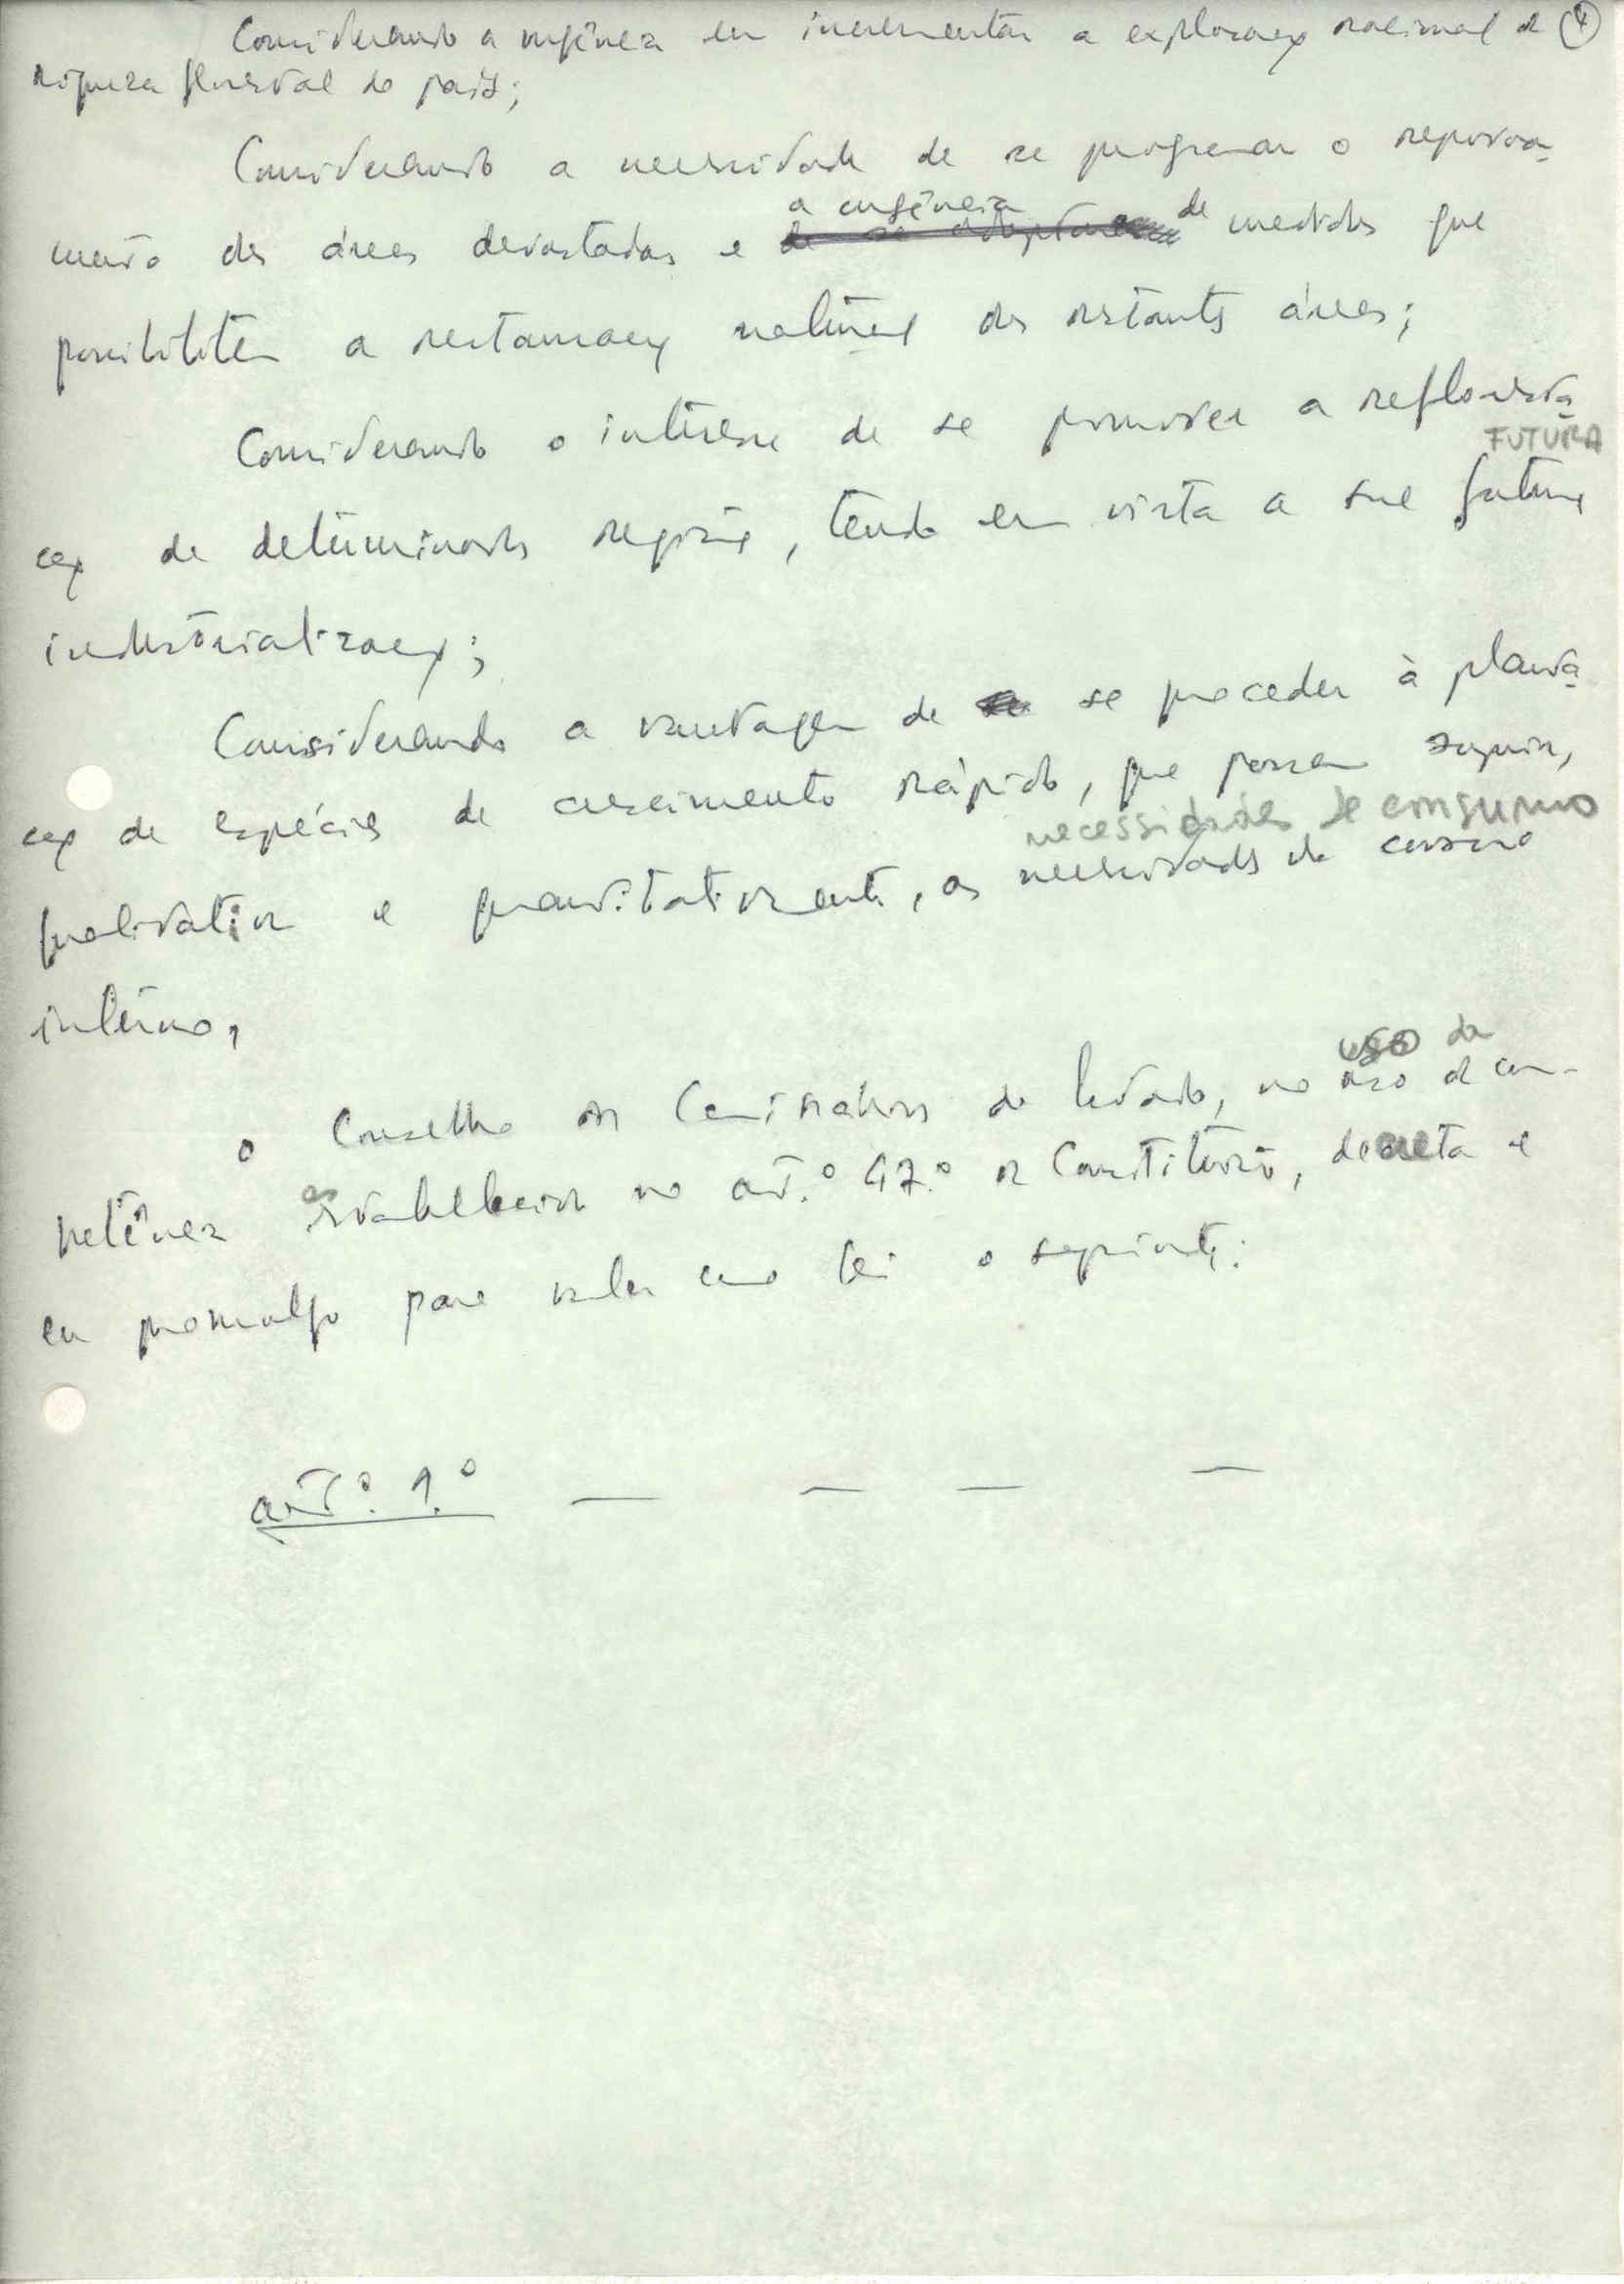 Considerando a urgência em incrementar a exploração racional da (4)
riqueza florestal do país;
Considerando a necessidade de se programar o repovoa-
mento das áreas devastadas e a urgência de medidas que
possibilitem a restauração natural das restantes áreas;
Considerando o interesse de se promover a refloresta-
FUTURA
ção de determinadas regiões, tendo em vista a sua futura
industrialização;
Considerando a vantagem de se proceder à planta-
ção de espécies de crescimento rápido, que possam suprir,
necessidades de consumo
qualitativa e quantitativamente, as necessidades de consumo
interno,
uso da
O Conselho dos Comissários do Estado, no uso da com-
petência estabelecida no art.º 47.º da Constituição, decreta e
eu promulgo para valer como lei o seguinte:
artº. 1.º — — — —